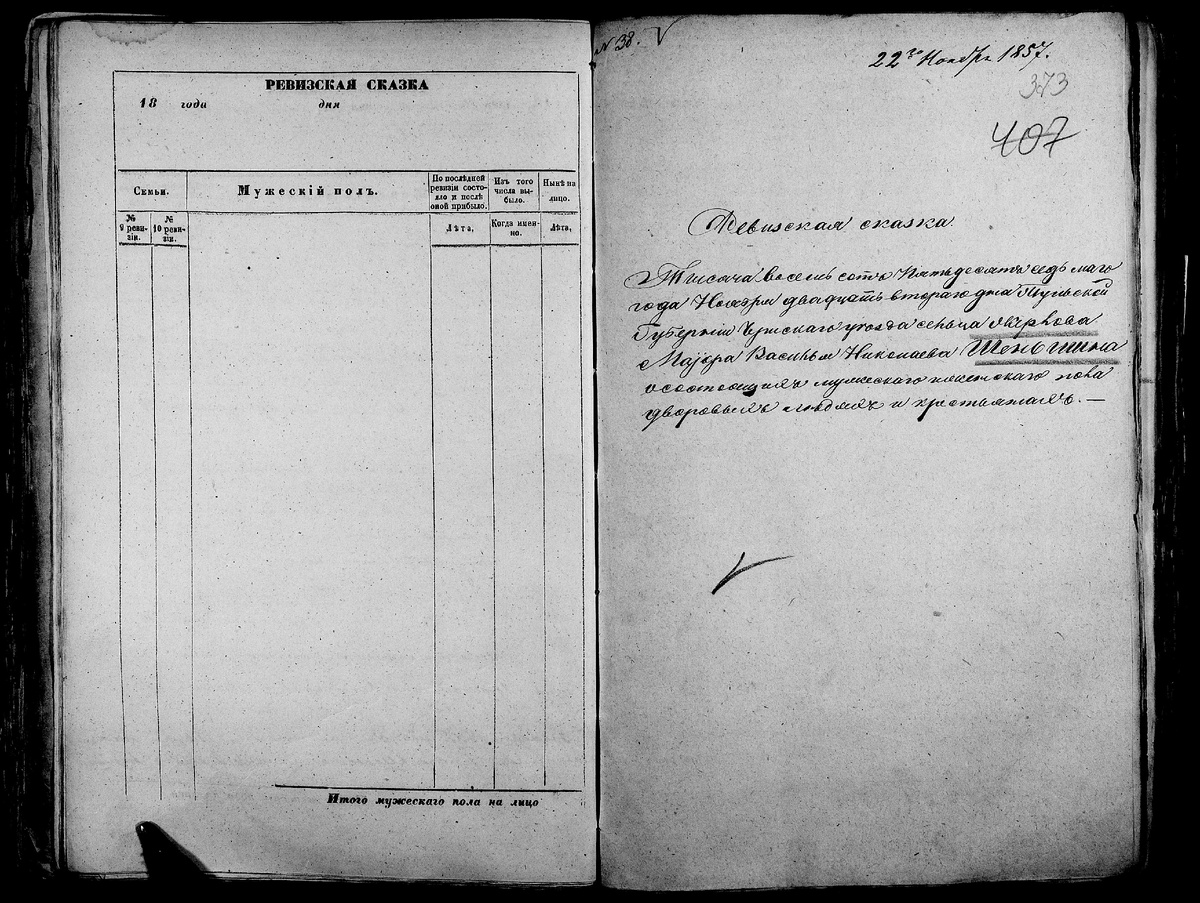 РЕВИЗСКАЯ СКАЗКА
18 года дня
Семьи.
Мужескій полъ.
По послѣдней
ревизіи состо-
яло и послѣ
оной прибыло.
Изъ того
числа вы-
было.
Нынѣ на
лицо.
№
9 реви-
зіи.
№
10 реви-
зіи.
Лѣта,
Когда имен-
но.
Лѣта,
Итого мужескаго пола на лицо
N 38.
22го Ноября 1857.
373
407
Ревизская сказка
Тысяча восемь сотъ Пятьдесятъ седьмаго
года Ноября двадцать втораго дня Тульской
Губерніи Чернскаго уезда сельца
Маіора Василья Николаева Шеньшина
о состоящихъ мужескаго и женскаго пола
дворовыхъ людяхъ и крестьянахъ. —